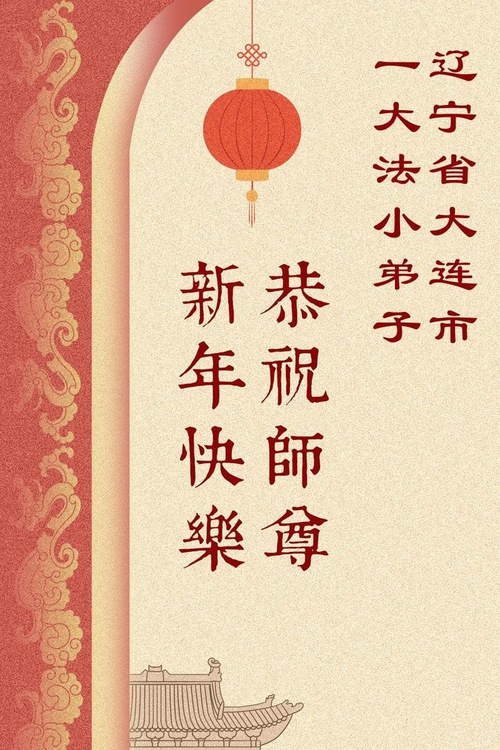 辽宁省大连市
一大法小弟子
恭祝師尊
新年快樂